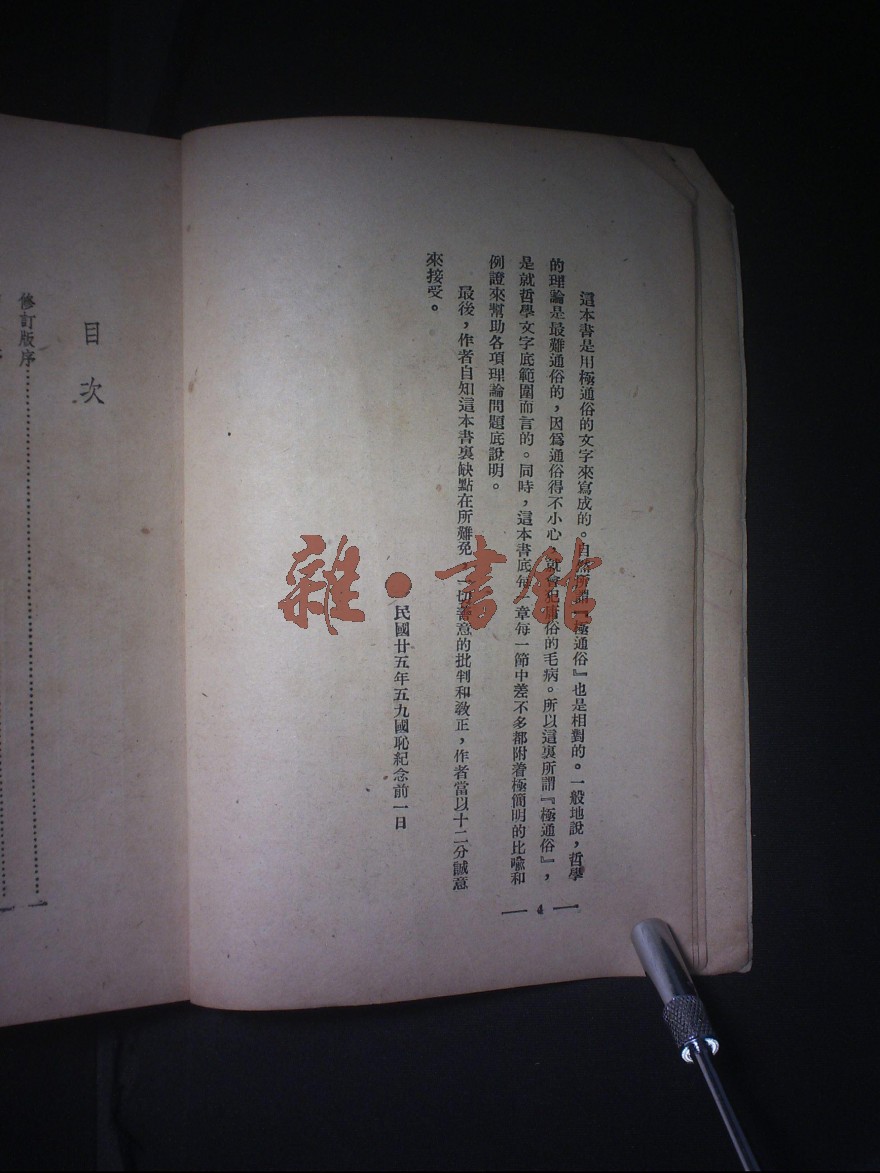 這本書是用極通俗的文字來寫成的。自然所謂『極通俗』也是相對的。一般地說，哲學
的理論是最難通俗的，因爲通俗得不小心，就會犯庸俗的毛病。所以這裏所謂『極通俗』，
是就哲學文字底範圍而言的。同時，這本書底每一章每一節中差不多都附着極簡明的比喩和
例證來幫助各項理論問題底說明。
最後，作者自知這本書裏缺點在所難免，一切善意的批判和敎正，作者當以十二分誠意
來接受。
民國廿五年五九國恥紀念前一日
4
目次
修訂版序
一
雜·書館